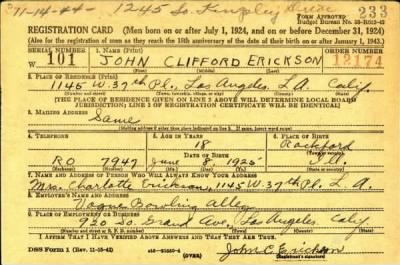 "11-14-44- 1245 So. Kingsley Drive
FORM APPROVED
Budget Bureau No. 33-R012-43
233
REGISTRATION CARD (Men born on or after July 1, 1924, and on or before December 31, 1924)
(Also for the registration of men as they reach the 18th anniversary of the date of their birth on or after January 1, 1943.)
SERIAL NUMBER 1. NAME (Print) ORDER NUMBER
W 101 JOHN CLIFFORD ERICKSON 12174
(First) (Middle) (Last)
2. PLACE OF RESIDENCE (Print)
1145 W. 37th Pl., Los Angeles, L.A. Calif.
(Number and street) (Town, township, village, or city) (County) (State)
[THE PLACE OF RESIDENCE GIVEN ON LINE 2 ABOVE WILL DETERMINE LOCAL BOARD
JURISDICTION; LINE 2 OF REGISTRATION CERTIFICATE WILL BE IDENTICAL]
3. MAILING ADDRESS
Same
(Mailing address if other than place indicated on line 2. If same, insert word same)
4. TELEPHONE 5. AGE IN YEARS 6. PLACE OF BIRTH
18 Rockford
DATE OF BIRTH (Town or county)
RO 7947 June 8, 1925 Ill.
(Exchange) (Number) (Mo.) (Day) (Yr.) (State or country)
7. NAME AND ADDRESS OF PERSON WHO WILL ALWAYS KNOW YOUR ADDRESS
Mrs. Charlotte Erickson, 1145 W. 37th Pl. L.A.
8. EMPLOYER'S NAME AND ADDRESS
Vogue Bowling Alley
9. PLACE OF EMPLOYMENT OR BUSINESS
920 So. Grand Ave., Los Angeles, Calif.
(Number and street or R. F. D. number) (Town) (County) (State)
I AFFIRM THAT I HAVE VERIFIED ABOVE ANSWERS AND THAT THEY ARE TRUE.
DSS Form 1 (Rev. 11-16-42) (OVER) John C. Erickson
(Registrant's signature)